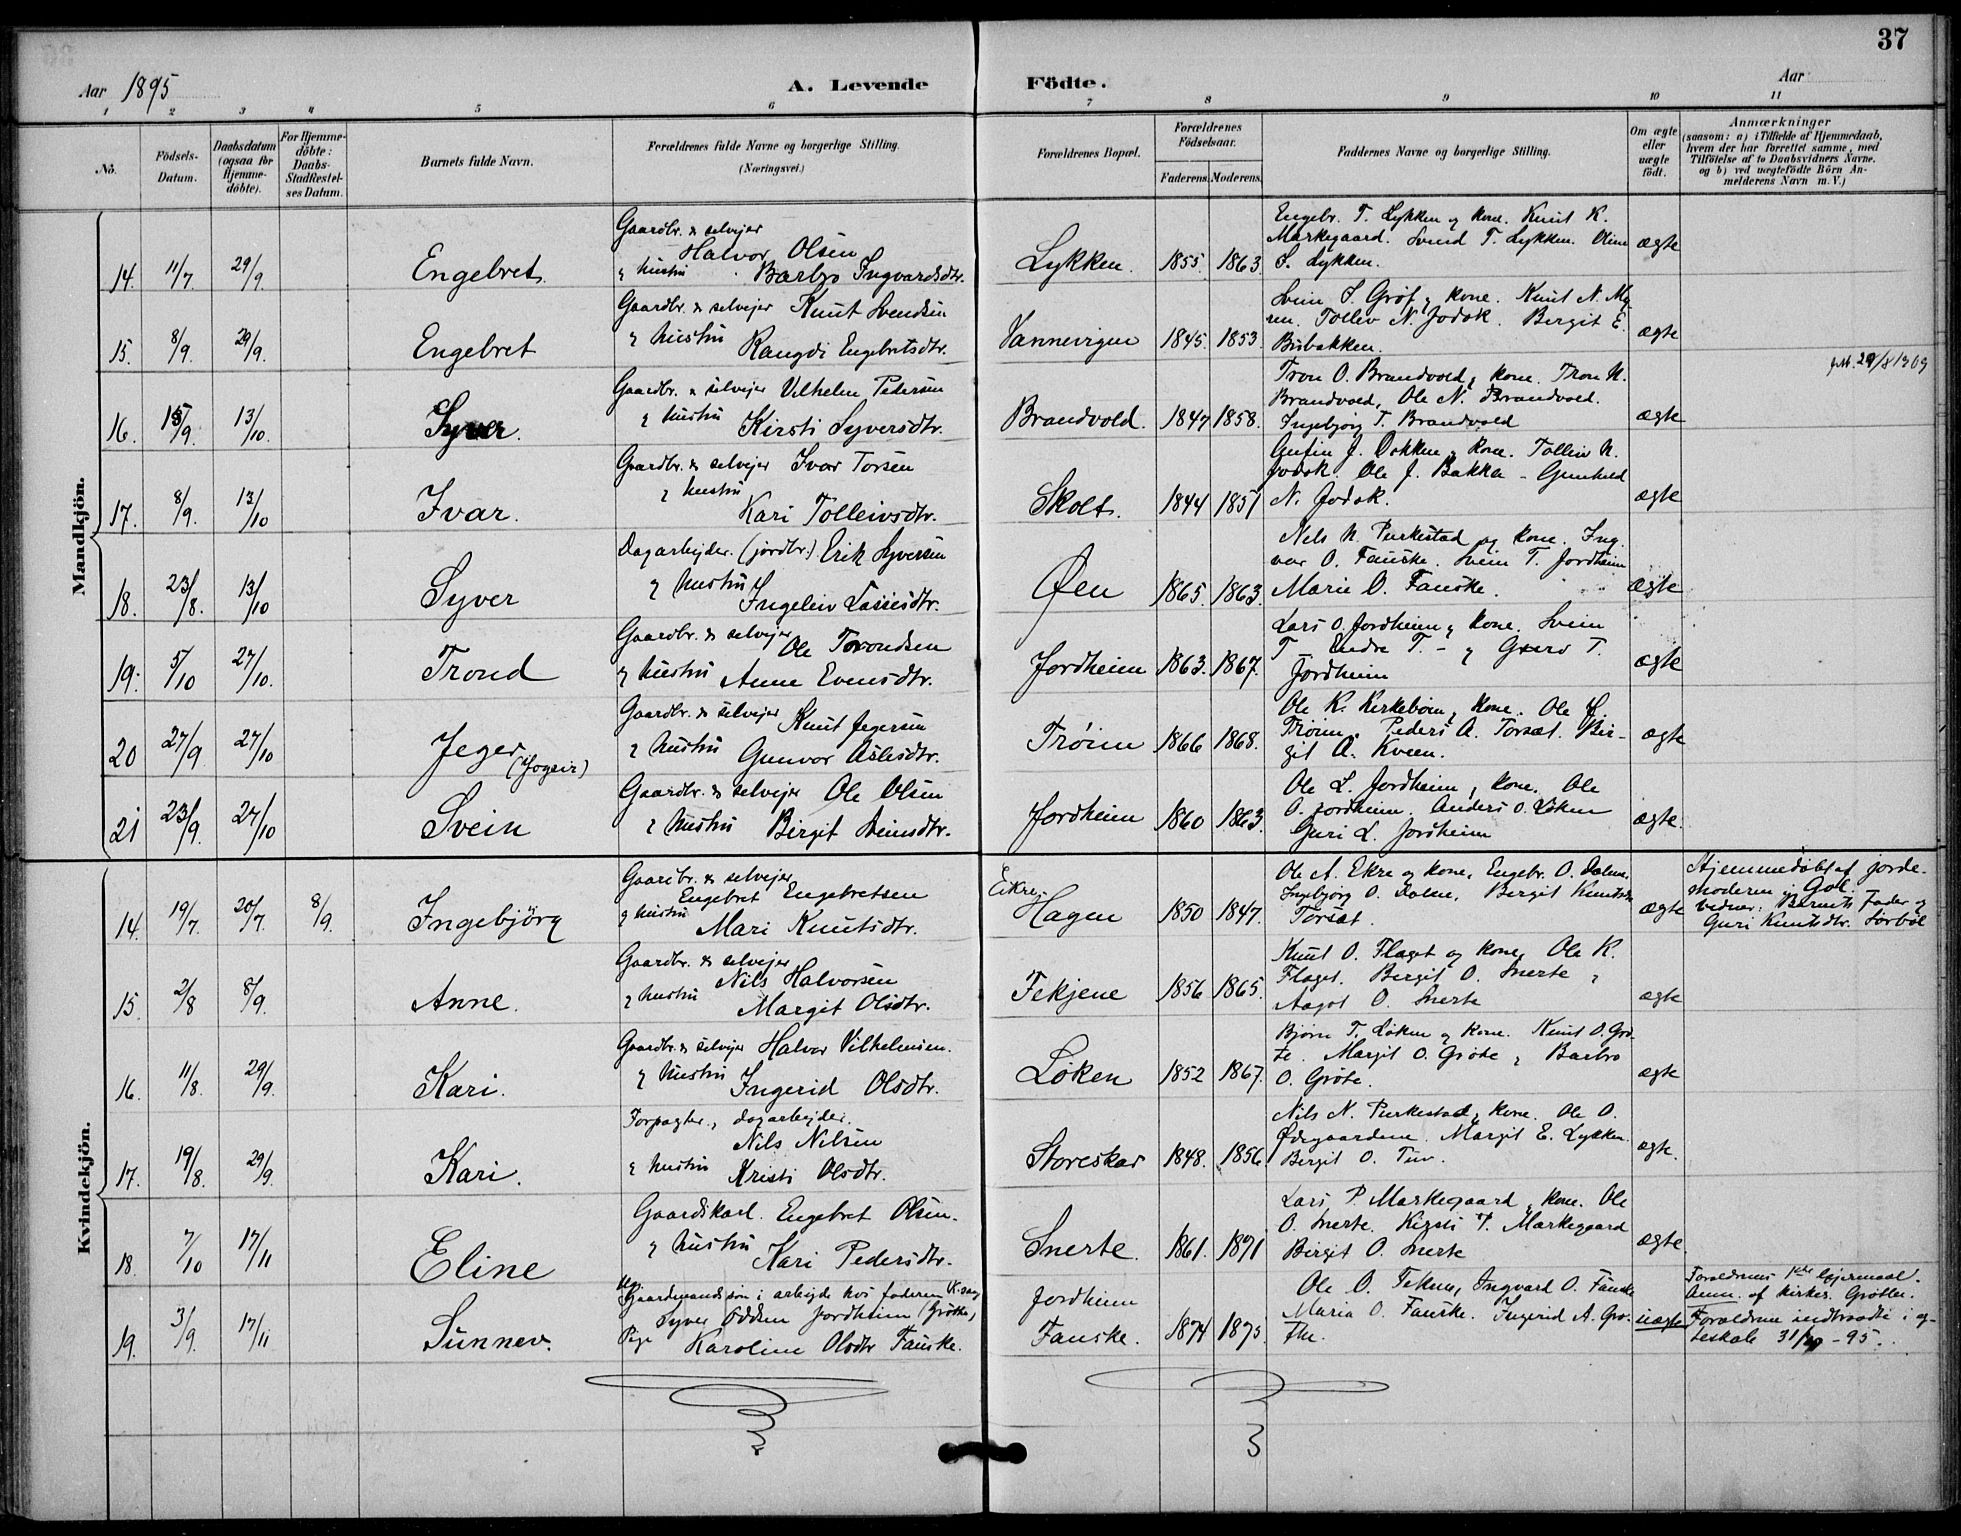 37
Aar 1895
A. Levende Födte.
Aar
1 2 3 4 5 6 7 8 9 10 11
No.
Födsels-Datum.
Daabsdatum (ogsaa for Hjemme-döbte).
For Hjemme-döbte: Daabs-Stadfæstel-ses Datum.
Barnets fulde Navn.
Forældrenes fulde Navne og borgerlige Stilling. (Næringsvei.)
Forældrenes Bopæl.
Forældrenes Födselsaar.
Faderens. Moderens.
Faddernes Navne og borgerlige Stilling.
Om ægte eller uægte födt.
Anmærkninger
(saasom: a) i Tilfælde af Hjemmedaab,
hvem der har forrettet samme, med
Tilföielse af to Daabsvidners Navne.
og b) ved uægtefödte Börn An-
melderens Navn m. V.)
Mandkjön.
14. 11/7 29/9 Engebret
Gaardbr. & selvejer
Halvor Olsen
& hustru Barbro Ingvardsdtr.
Lykken. 1855. 1863.
Engebr. T. Lykken & kone. Knut K.
Markegaard. Svend T. Lykken.
S. Lykken.
ægte
15. 8/9. 29/9. Engebret
Gaardbr. & selvejer Knut Svendsen
& hustru Rangdi Engebretsdtr.
Vannevigen 1845. 1853.
Svein S. Grøf & kone. Knut N. My
ren. Tollev N. Jodok. Bergit E.
Bisbakken.
ægte
16. 13/10 Syver.
Gaardbr. & selvejer Vilhelm Pedersen
& hustru Kirsti Syversdtr.
Brandvold. 1847 1858.
Tron O. Brandvold & kone. Tron N.
Brandvold, Ole N. Brandvold.
Ingebjørg T. Brandvold
ægte
17. 8/9. 13/10 Ivar.
Gaardbr. & selvejer Ivar Torsen
& hustru
Kari Tolleivsdtr.
Skolt. 1844 1851
J. Dokken & kone. Tolleiv N.
Jodok. Ole J. Bakka - Gunhild
N. Jodok.
ægte
18. 23/8. 13/10 Syver
Dagarbejder. (jordbr.) Erik Syversen
& hustru
Ingeleiv Lassesdtr.
Øen 1865. 1863.
Nels N. Purkestad og kone. Ing.
var O. Fauske. Svein T. Jordheim
Marie O. Fauske.
ægte
19. 5/10 27/10. Trond
Gaardbr. & selvejer
Ole Torondsen
& hustru Anne Evensdtr.
Jordheim 1863. 1867.
Lars O. Jordheim & kone. Svein
T - Endre T. - & Guro T.
Jordheim
ægte
20 27/9 27/10 Jeger (Jogeir)
Gaardbr. & selvejer Knut Jegersen
& hustru Gunvor Aslesdtr.
Trøim 1866 1868.
Ole K. Kirkeboen & kone. Ole L.
Trøim. Peders A. Torsæt. Bir-
git A. Kveen.
ægte
21 23/9. 27/10 Svein
Gaardbr. & selvejer Ole Olsen
& hustru Birgit Sveinsdtr.
Jordheim 1860 1863.
Ole L. Jordheim & kone. Ole
O. Jordheim. Anders O. Løken
Guri L. Jordheim
ægte.
Kvindekjön.
14. 19/7. 20/7. 8/9. Ingebjörg
Gaardbr. & selvejer
Engebret Engebretsen
& hustru Mari Knutsdtr.
Eikre-
Hagen 1850 1847.
Ole A. Ekre og kone, Engebr. O. Dalene.
Ingebjörg O. Dalene, Bergit Knutsdtr
Torsæt.
ægte
Hjemmedöbt af jorde-
moderen i Gol.
vidner: Barnets Fader og
Guri Knutsdtr. Sørbøl
15. 2/8 8/9. Anne.
Gaardbr. & selvejer
Nils Halvorsen
& hustru Margit Olsdtr.
Fekjene 1856 1865.
Knut O. Flaget og kone, Ole K.
Flaget. Bergit O. Snerte &
Aagot O. Snerte
ægte
16. 11/8. 29/9. Kari.
Gaardbr. & selvejer Halvor Vilhelmsen.
& hustru Ingerid Olsdtr.
Løken 1852 1867.
Bjørn T. Løken og kone. Knut O. Grö-
te. Margit O. Gröte & Barbro
O. Gröte.
ægte
17. 19/8. 29/9. Kari.
Forpagter, dagarbejder.
Nils Nilsen
& hustru Kristi Olsdtr.
Storeskar 1848. 1856
Nils N. Purkestad & kone. Ole O.
Ødegaarden. Margit E. Lykken.
Bergit O. Tuv.
ægte.
18. 7/10 17/11 Eline
Gaardskarl. Engebret Olsen.
& hustru Kari Pedersdtr.
Snerte. 1861. 1871
Lars P. Markegaard & kone. Ole
O. Snerte. Kirsti P. Markegaard
Birgit O. Snerte
ægte.
19. 3/9. 17/11 Sunnev.
Gaardmandssøn i arbejde hos faderen
Syver Oddsen Jordheim (Grøthe)
Pige Karoline Olsdtr Fauske.
Jordheim
Fauske. 1874 1875.
Ole O. Ingvard O. Fauske
Maria O. Fauske. Ingerid A. Grø-
the.
uægte
Forældrenes 1ste lejermaal.
Anm. af kirkes. Grøthe.
Forældrene indtraadte i æg-
teskab 31/10 - 95.